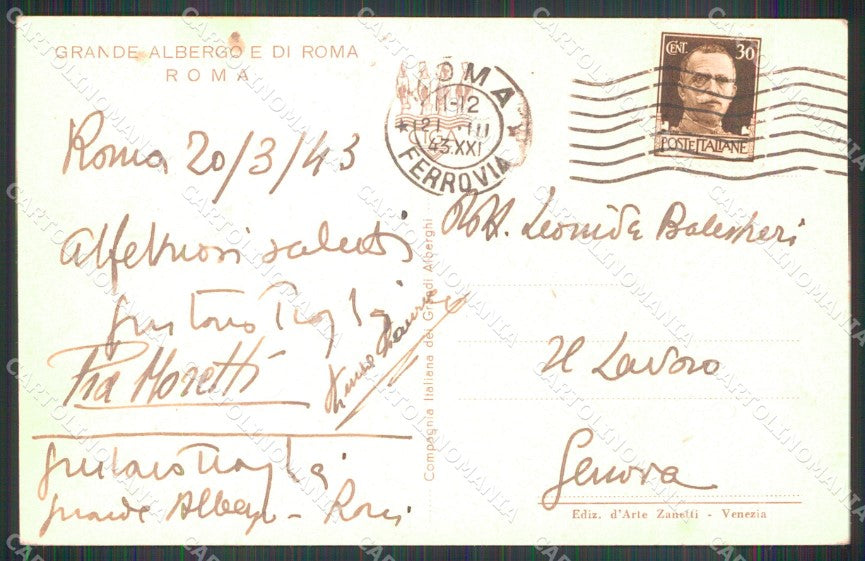 GRANDE ALBERGO E DI ROMA
ROMA
Roma 20/3/43
Affettuosi saluti
Pia Moretti
Grande Albergo - Roma
Compagnia Italiana dei Grandi Alberghi
ROMA
11-12
21 III
43.XXI
FERROVIA
CENT. 30
POSTE ITALIANE
Dott. Leonida Balestreri
Il Lavoro
Genova
Ediz. d'Arte Zanetti - Venezia
CARTOLINOMANIA